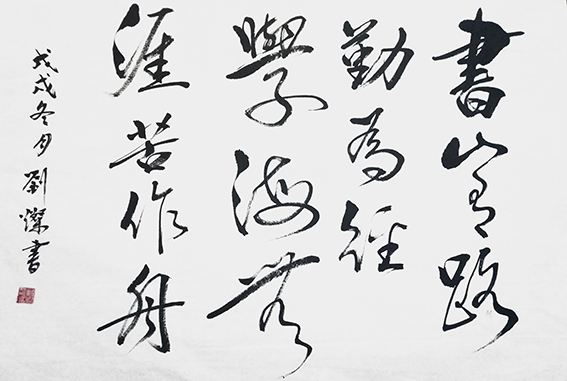 書山有路
勤為径
學海無
涯苦作舟
戊戌冬月劉燦書